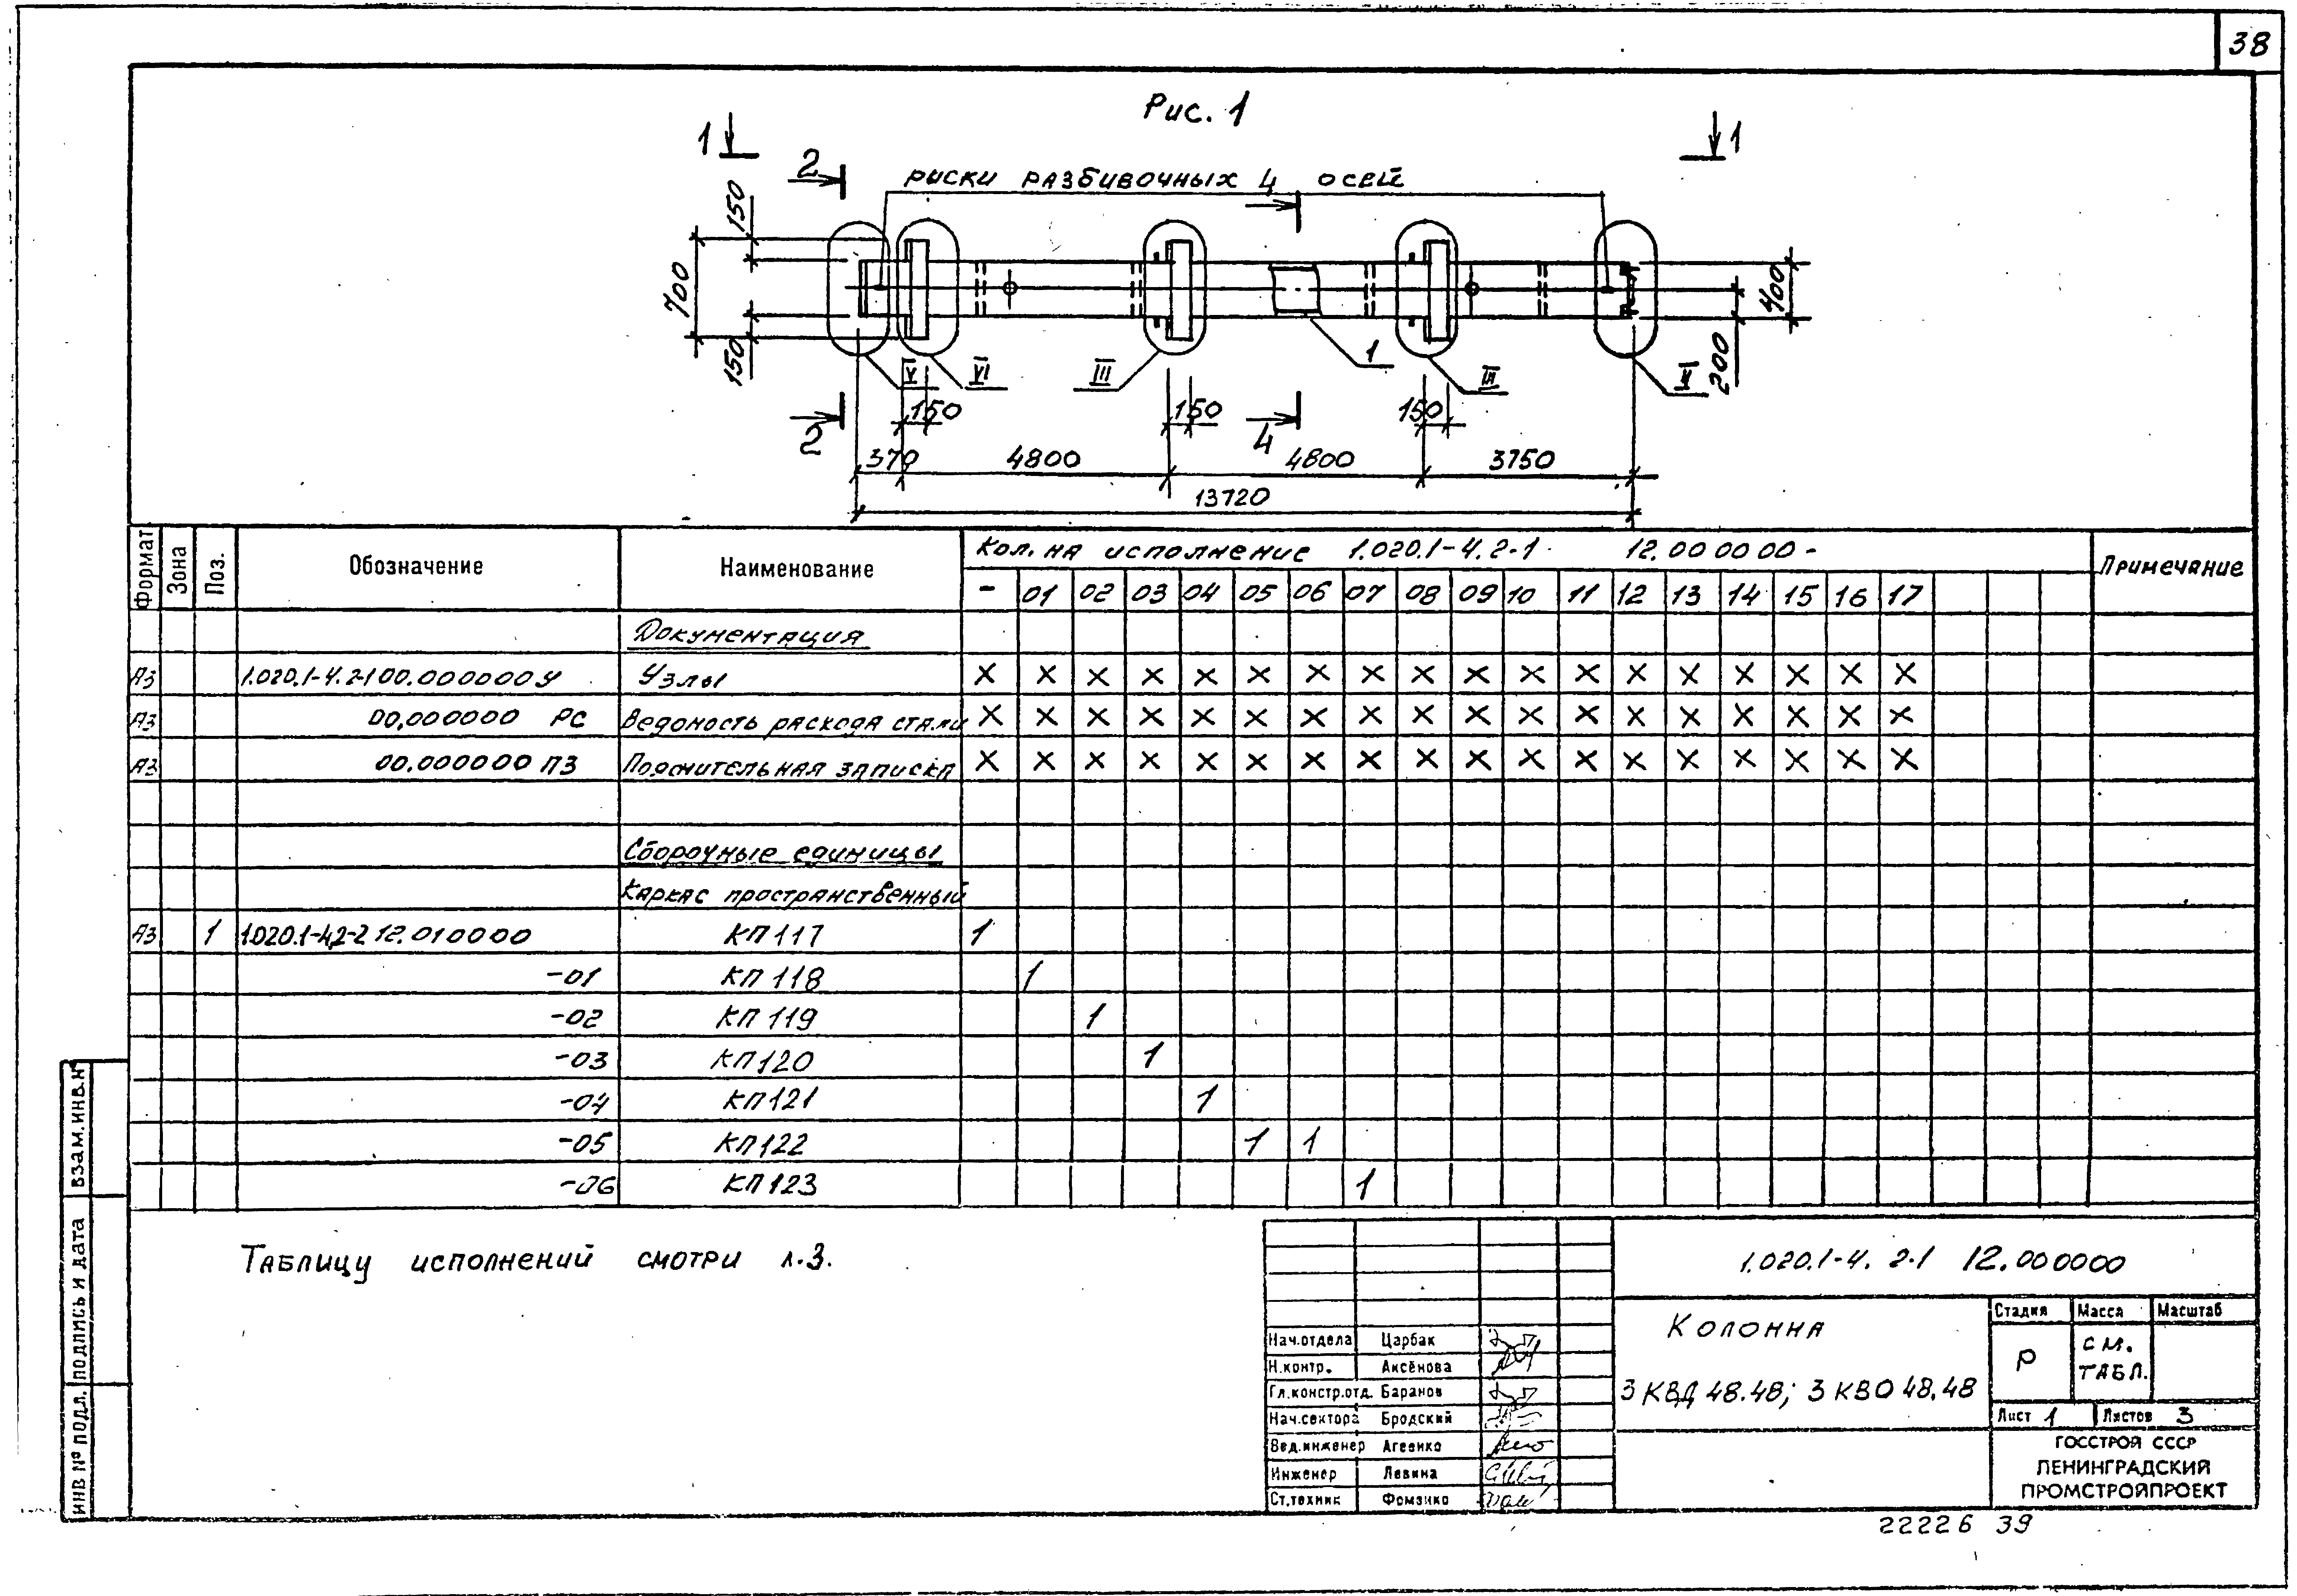 38
Рис. 1
1 1
2 риски разбивочных 4 осей
150
700
150
400
200
V VI III 1 III II
150 150 150
2 4
370 4800 4800 3750
13720
Формат Зона Поз. Обозначение Наименование Кол. на исполнение 1.020.1-4.2-1 12.000000- Примечание
- 01 02 03 04 05 06 07 08 09 10 11 12 13 14 15 16 17
Документация
А3 1.020.1-4.2-1 00.000000У Узлы × × × × × × × × × × × × × × × × × ×
А3 00.000000 РС Ведомость расхода стали × × × × × × × × × × × × × × × × × ×
А3 00.000000 ПЗ Пояснительная записка × × × × × × × × × × × × × × × × × ×
Сборочные единицы
Каркас пространственный
А3 1 1.020.1-4.2-2 12.010000 КП 117 1
-01 КП 118 1
-02 КП 119 1
-03 КП 120 1
-04 КП 121 1
-05 КП 122 1 1
-06 КП 123 1
Таблицу исполнений смотри л.3.
ИНВ № ПОДЛ. ПОДПИСЬ И ДАТА ВЗАМ.ИНВ.№
1.020.1-4. 2-1 12.000000
Нач.отдела Царбак
Н.контр. Аксёнова
Гл.констр.отд. Баранов
Нач.сектора Бродский
Вед.инженер Агеенко
Инженер Левина
Ст.техник Фоменко
Колонна
3 КВД 48.48; 3 КВО 48.48
Стадия Масса Масштаб
Р см. табл.
Лист 1 Листов 3
ГОССТРОЙ СССР
ЛЕНИНГРАДСКИЙ
ПРОМСТРОЙПРОЕКТ
22226 39